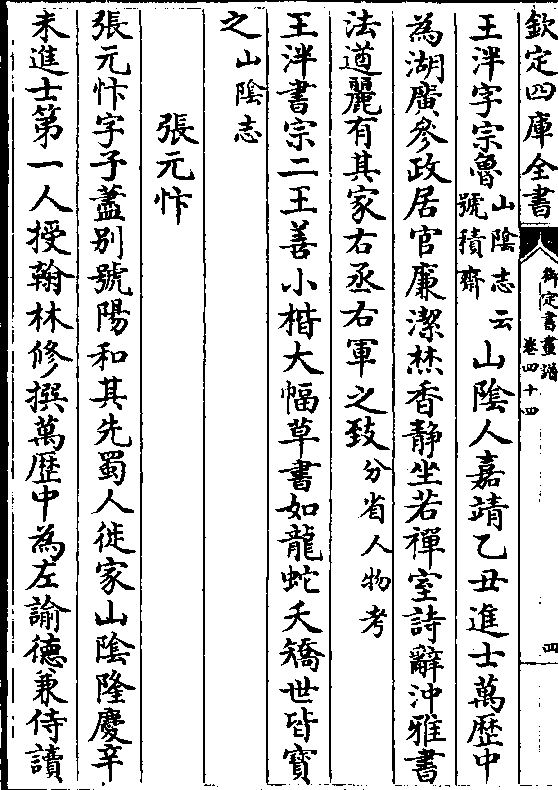 欽定四庫全書
御定書畫譜
卷四十四
四
王泮字宗魯山陰志云號積齋山陰人嘉靖乙丑進士萬歷中
為湖廣參政居官廉潔焚香靜坐若禪室詩辭沖雅書
法遒麗有其家右丞右軍之致分省人物考
王泮書宗二王善小楷大幅草書如龍蛇夭矯世皆寶
之山陰志
張元忭
張元忭字子藎别號陽和其先蜀人徙家山陰隆慶辛
未進士第一人授翰林修撰萬歷中為左諭德兼侍讀